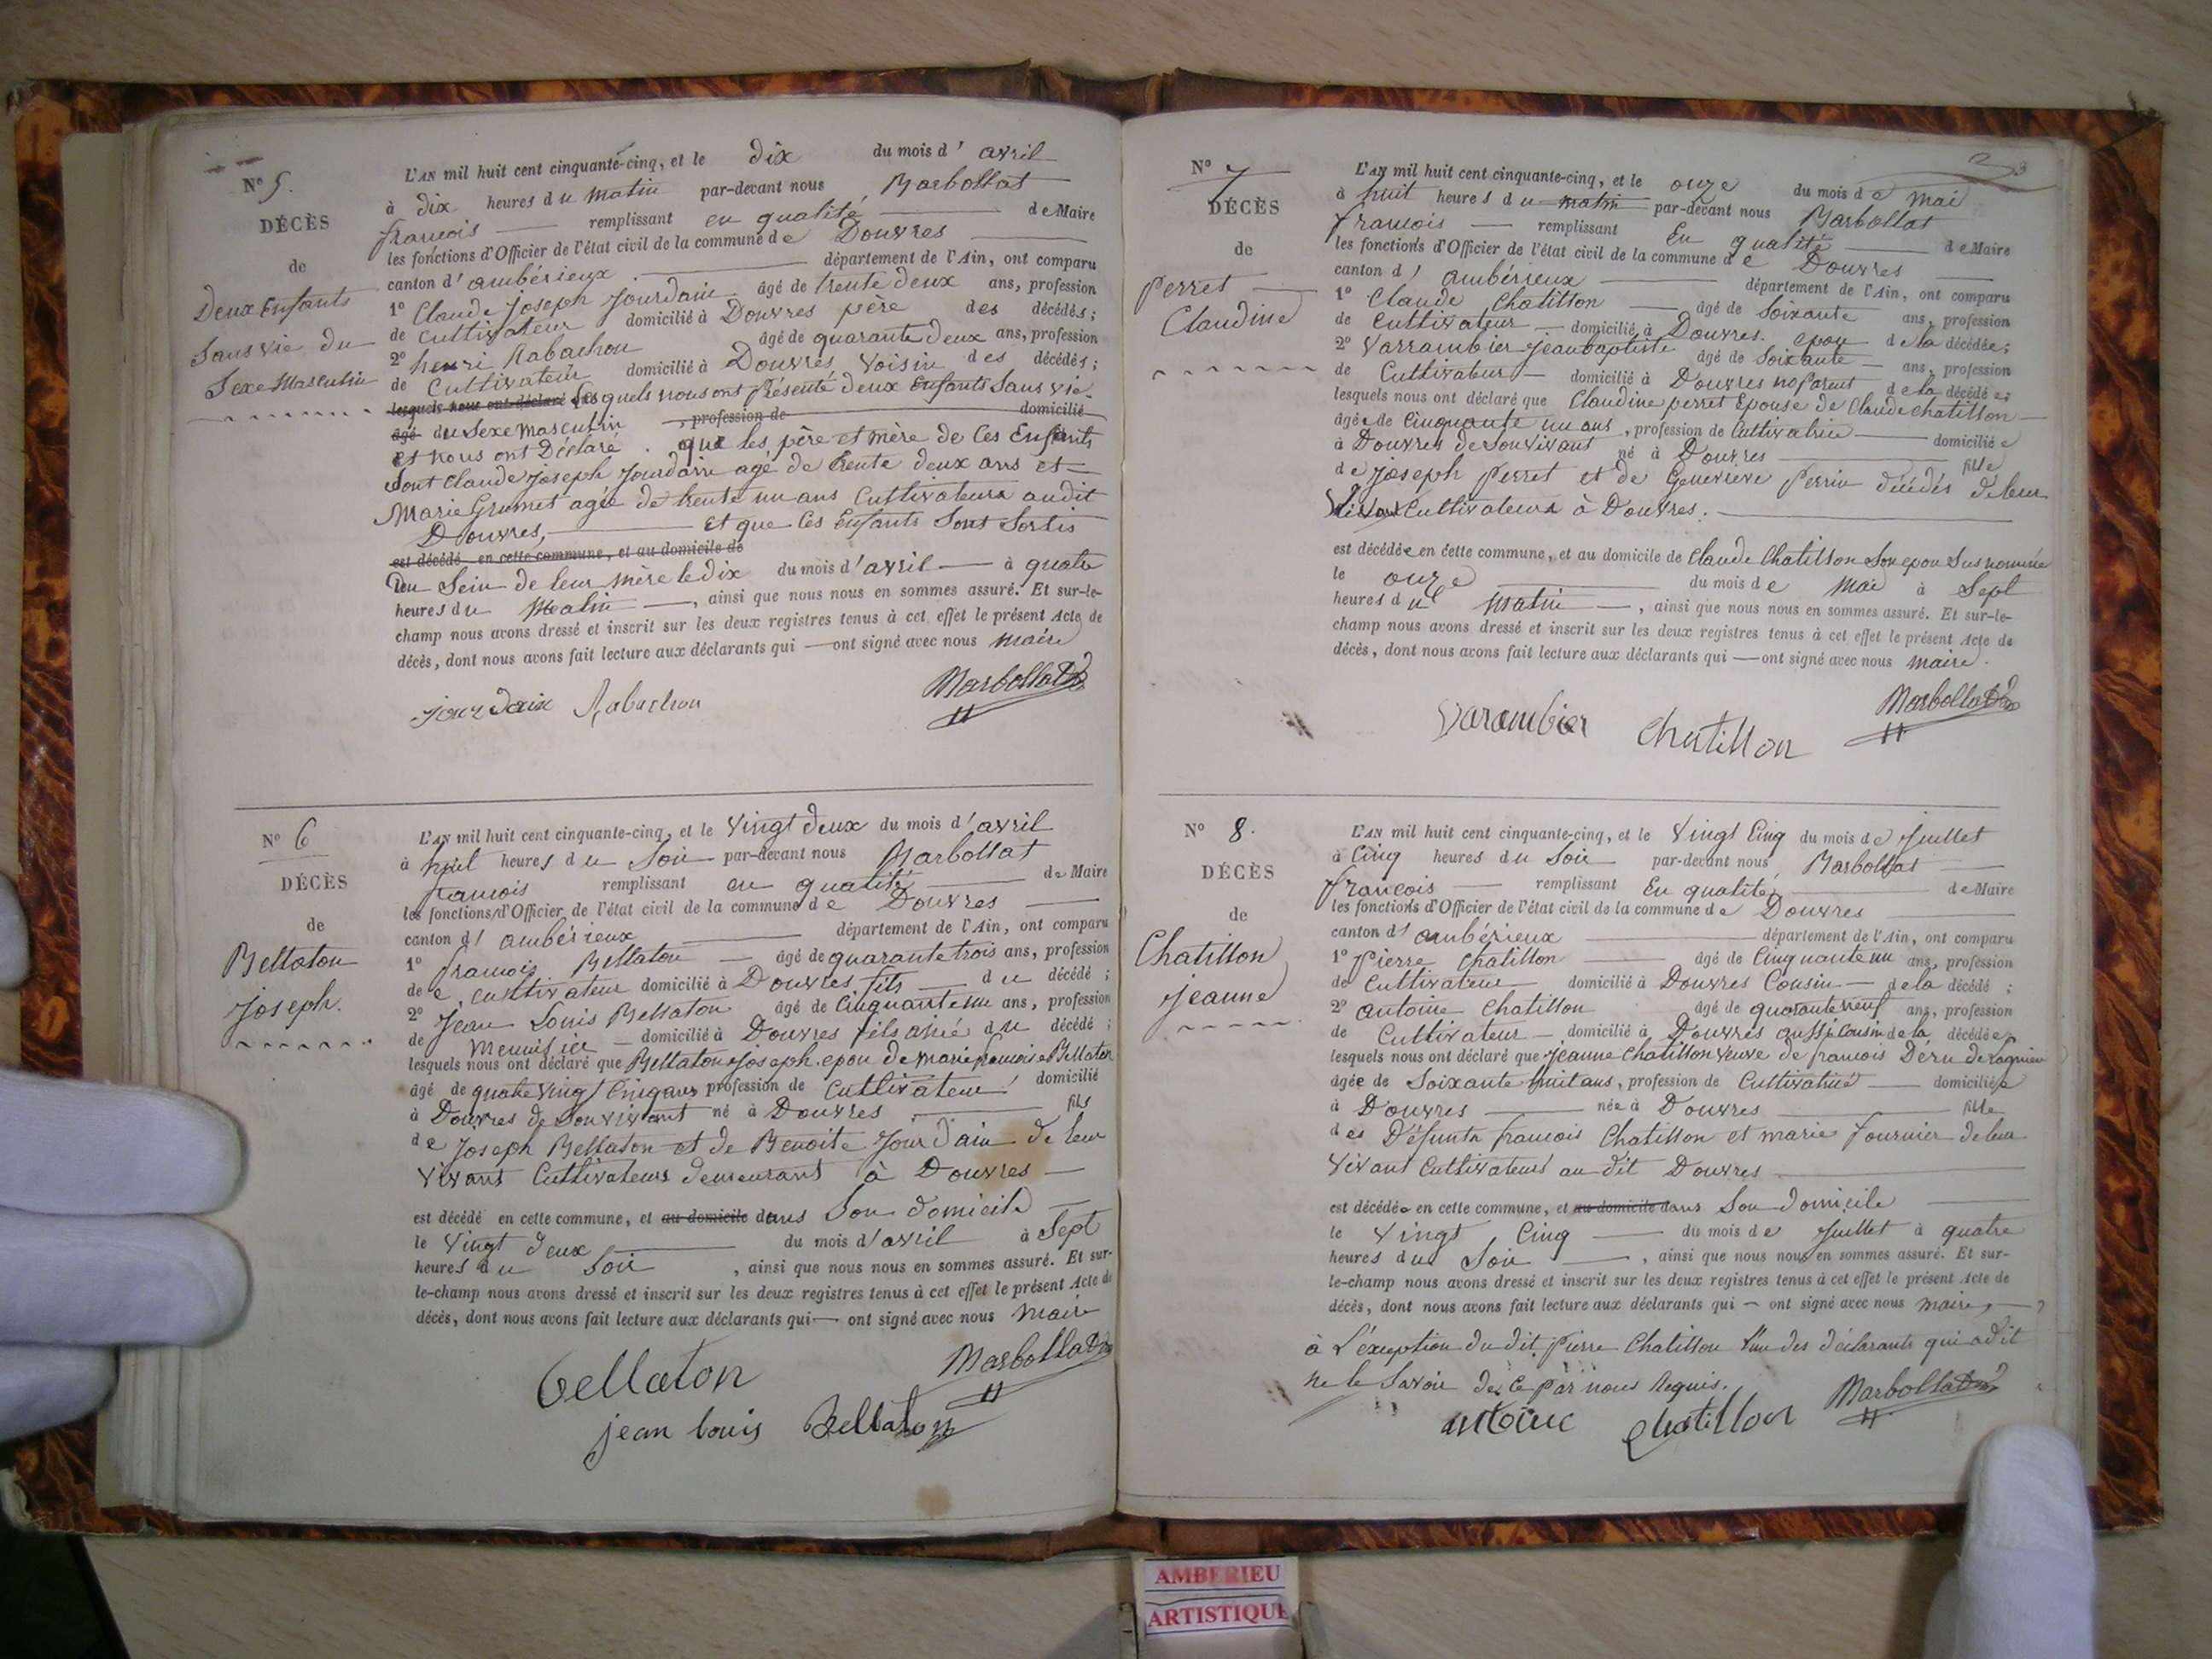 N° 5.
DÉCÈS
de
Deux Enfants
Sans vie du
Sexe Masculin
L'AN mil huit cent cinquante-cinq, et le dix du mois d'avril
à dix heures du matin par-devant nous Marbollat
francois remplissant en qualité de Maire
les fonctions d'Officier de l'état civil de la commune de Douvres
canton d'ambérieux département de l'Ain, ont comparu
1° Claude Joseph Jourdain âgé de trente deux ans, profession
de Cultivateur domicilié à Douvres père des décédés;
2° henri Rabachon âgé de quarante deux ans, profession
de Cultivateur domicilié à Douvres Voisin des décédés;
lesquels nous ont déclaré lesquels nous ont présenté deux enfants Sans vie
âgé du Sexe Masculin, profession de domicilié
et nous ont Déclaré que les père et mère de Ces Enfants
Sont Claude Joseph Jourdain agé de trente deux ans et
Marie Grumet agée de trente un ans Cultivateurs audit
Douvres, et que Ces Enfants Sont Sortis
est décédé en cette commune, et au domicile de
du Sein de leur Mère le dix du mois d'avril à quatre
heures du Matin, ainsi que nous nous en sommes assuré. Et sur-le-
champ nous avons dressé et inscrit sur les deux registres tenus à cet effet le présent Acte de
décès, dont nous avons fait lecture aux déclarants qui ont signé avec nous maire
jourdain Rabachon Marbollat
N° 6
DÉCÈS
de
Bellaton
Joseph.
L'AN mil huit cent cinquante-cinq, et le Vingt deux du mois d'avril
à huit heures du Soir par-devant nous Marbollat
francois remplissant en qualité de Maire
les fonctions d'Officier de l'état civil de la commune de Douvres
canton d'ambérieux département de l'Ain, ont comparu
1° francois Bellaton âgé de quarante trois ans, profession
de cultivateur domicilié à Douvres fils du décédé;
2° Jean Louis Bellaton âgé de Cinquante un ans, profession
de Menuisier domicilié à Douvres fils ainé du décédé;
lesquels nous ont déclaré que Bellaton Joseph epou de marie francoise Bellaton
âgé de quatre Vingt Cinq ans profession de Cultivateur domicilié
à Douvres de Son vivant né à Douvres fils
de Joseph Bellaton et de Benoite Jourdain de leur
Vivant Cultivateurs demeurant à Douvres
est décédé en cette commune, et au domicile dans Son domicile
le Vingt deux du mois d'avril à Sept
heures du Soir, ainsi que nous nous en sommes assuré. Et sur-
le-champ nous avons dressé et inscrit sur les deux registres tenus à cet effet le présent Acte de
décès, dont nous avons fait lecture aux déclarants qui ont signé avec nous Maire
bellaton Marbollat
jean louis Bellaton
N° 7
DÉCÈS
de
Perret
Claudine
L'AN mil huit cent cinquante-cinq, et le onze du mois de Mai
à huit heures du matin par-devant nous Marbollat
francois remplissant En qualité de Maire
les fonctions d'Officier de l'état civil de la commune de Douvres
canton d'ambérieux département de l'Ain, ont comparu
1° Claude Chatillon âgé de Soixante ans, profession
de Cultivateur domicilié à Douvres. epou de la décédée;
2° Varrambier Jean baptiste âgé de Soixante ans, profession
de Cultivateur domicilié à Douvres no parent de la décédée;
lesquels nous ont déclaré que Claudine perret Epouse de Claude Chatillon
âgée de Cinquante un ans, profession de Cultivatrice domiciliée
à Douvres de Son vivant né à Douvres fille
de Joseph Perret et de Genevieve Perrin décédés de leur
vivant Cultivateurs à Douvres.
est décédée en cette commune, et au domicile de Claude Chatillon Son epou Sus nommé
le onze du mois de Mai à Sept
heures du matin, ainsi que nous nous en sommes assuré. Et sur-le-
champ nous avons dressé et inscrit sur les deux registres tenus à cet effet le présent Acte de
décès, dont nous avons fait lecture aux déclarants qui ont signé avec nous maire.
Varambier Chatillon Marbollat
N° 8.
DÉCÈS
de
Chatillon
Jeanne
L'AN mil huit cent cinquante-cinq, et le Vingt Cinq du mois de Juillet
à Cinq heures du Soir par-devant nous Marbollat
francois remplissant En qualité de Maire
les fonctions d'Officier de l'état civil de la commune de Douvres
canton d'ambérieux département de l'Ain, ont comparu
1° Pierre Chatillon âgé de Cinquante un ans, profession
de Cultivateur domicilié à Douvres Cousin de la décédé;
2° antoine Chatillon âgé de quarante neuf ans, profession
de Cultivateur domicilié à Douvres aussi Cousin de la décédée;
lesquels nous ont déclaré que Jeanne Chatillon Veuve de francois Deru de Lagnieu
âgée de Soixante huit ans, profession de Cultivatrice domiciliée
à Douvres née à Douvres fille
des Défunts francois Chatillon et marie fournier de leur
Vivant Cultivateurs au dit Douvres
est décédée en cette commune, et au domicile dans Son domicile
le Vingt Cinq du mois de Juillet à quatre
heures du Soir, ainsi que nous nous en sommes assuré. Et sur-
le-champ nous avons dressé et inscrit sur les deux registres tenus à cet effet le présent Acte de
décès, dont nous avons fait lecture aux déclarants qui ont signé avec nous maire,
à L'exception du dit Pierre Chatillon l'un des déclarants qui a dit
ne le Savoir de ce par nous Requis.
antoine chatillon Marbollat
AMBERIEU
ARTISTIQUE